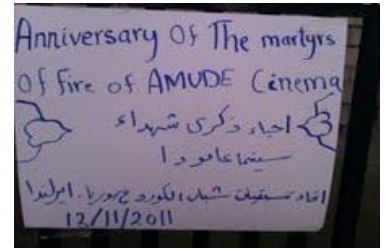 Anniversary Of The martyrs
Of Fire of AMUDE Cinema
احياء ذكرى شهداء
سينما عامودا
اتحاد تنسيقيات شباب الكورد في سوريا - ايرلندا
12/11/2011